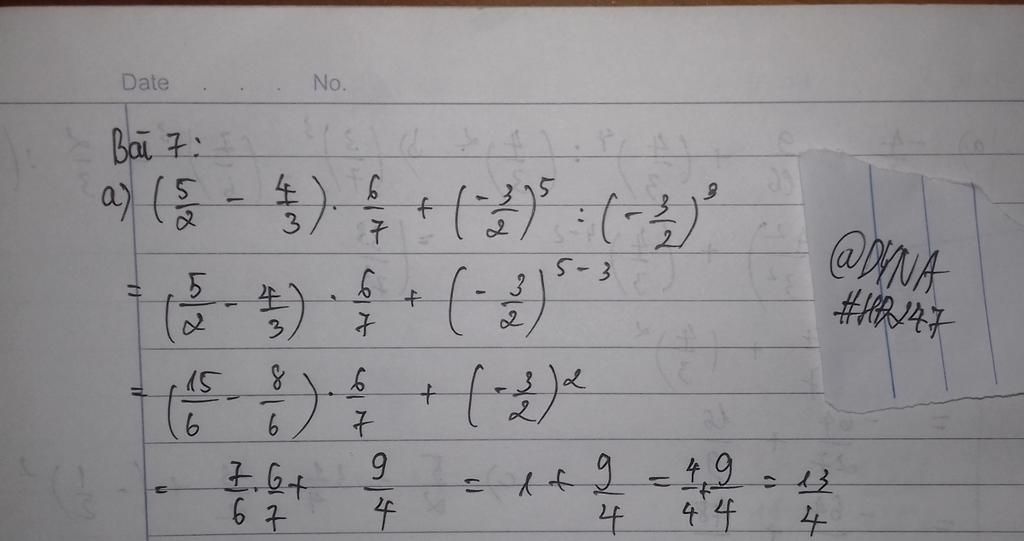 Date . . . . No.
Bài 7:
a) (5/2 - 4/3) . 6/7 + (-3/2)^5 : (-3/2)^3
= (5/2 - 4/3) . 6/7 + (-3/2)^(5-3)
= (15/6 - 8/6) . 6/7 + (-3/2)^2
= 7/6 . 6/7 + 9/4 = 1 + 9/4 = 4/4 + 9/4 = 13/4
@DYNA
#HR247